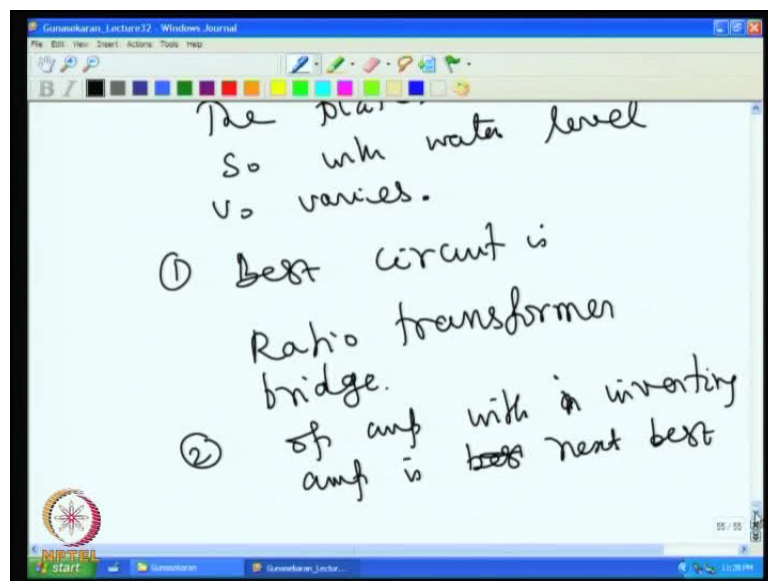 Gunasekaran_Lecture32 - Windows Journal
File Edit View Insert Actions Tools Help
The
So with water level
vo varies.
① Best circuit is
Ratio transformer
bridge.
② op amp with inverting
amp is next best
55 / 55
NPTEL
start Gunasekaran Gunasekaran_Lectur... 11:28 PM